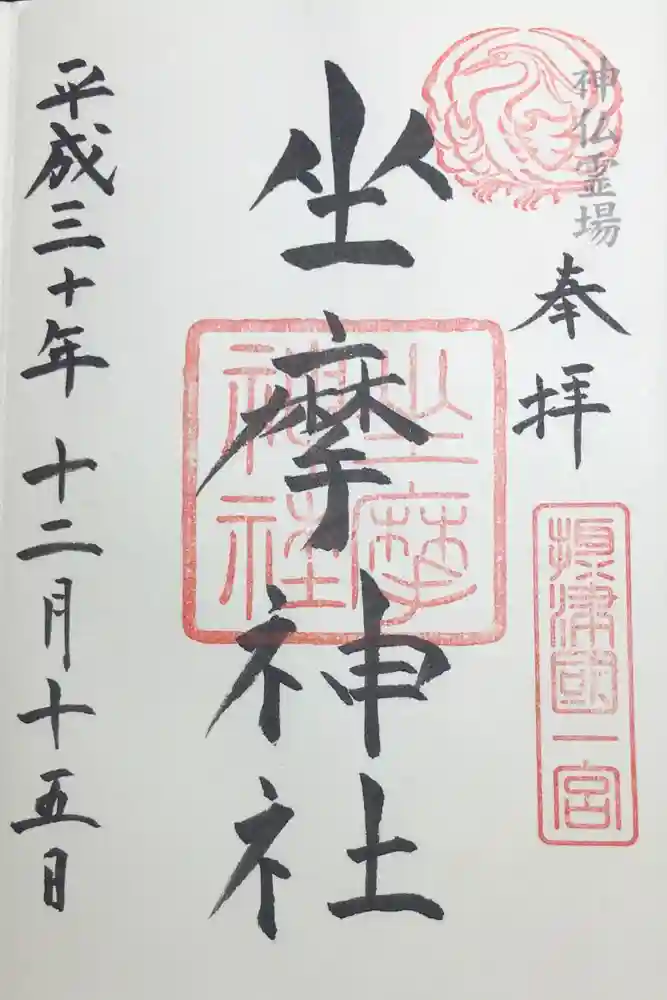 神仏霊場
奉拝
摂津國一宮
坐摩神社
坐摩神社
平成三十年十二月十五日